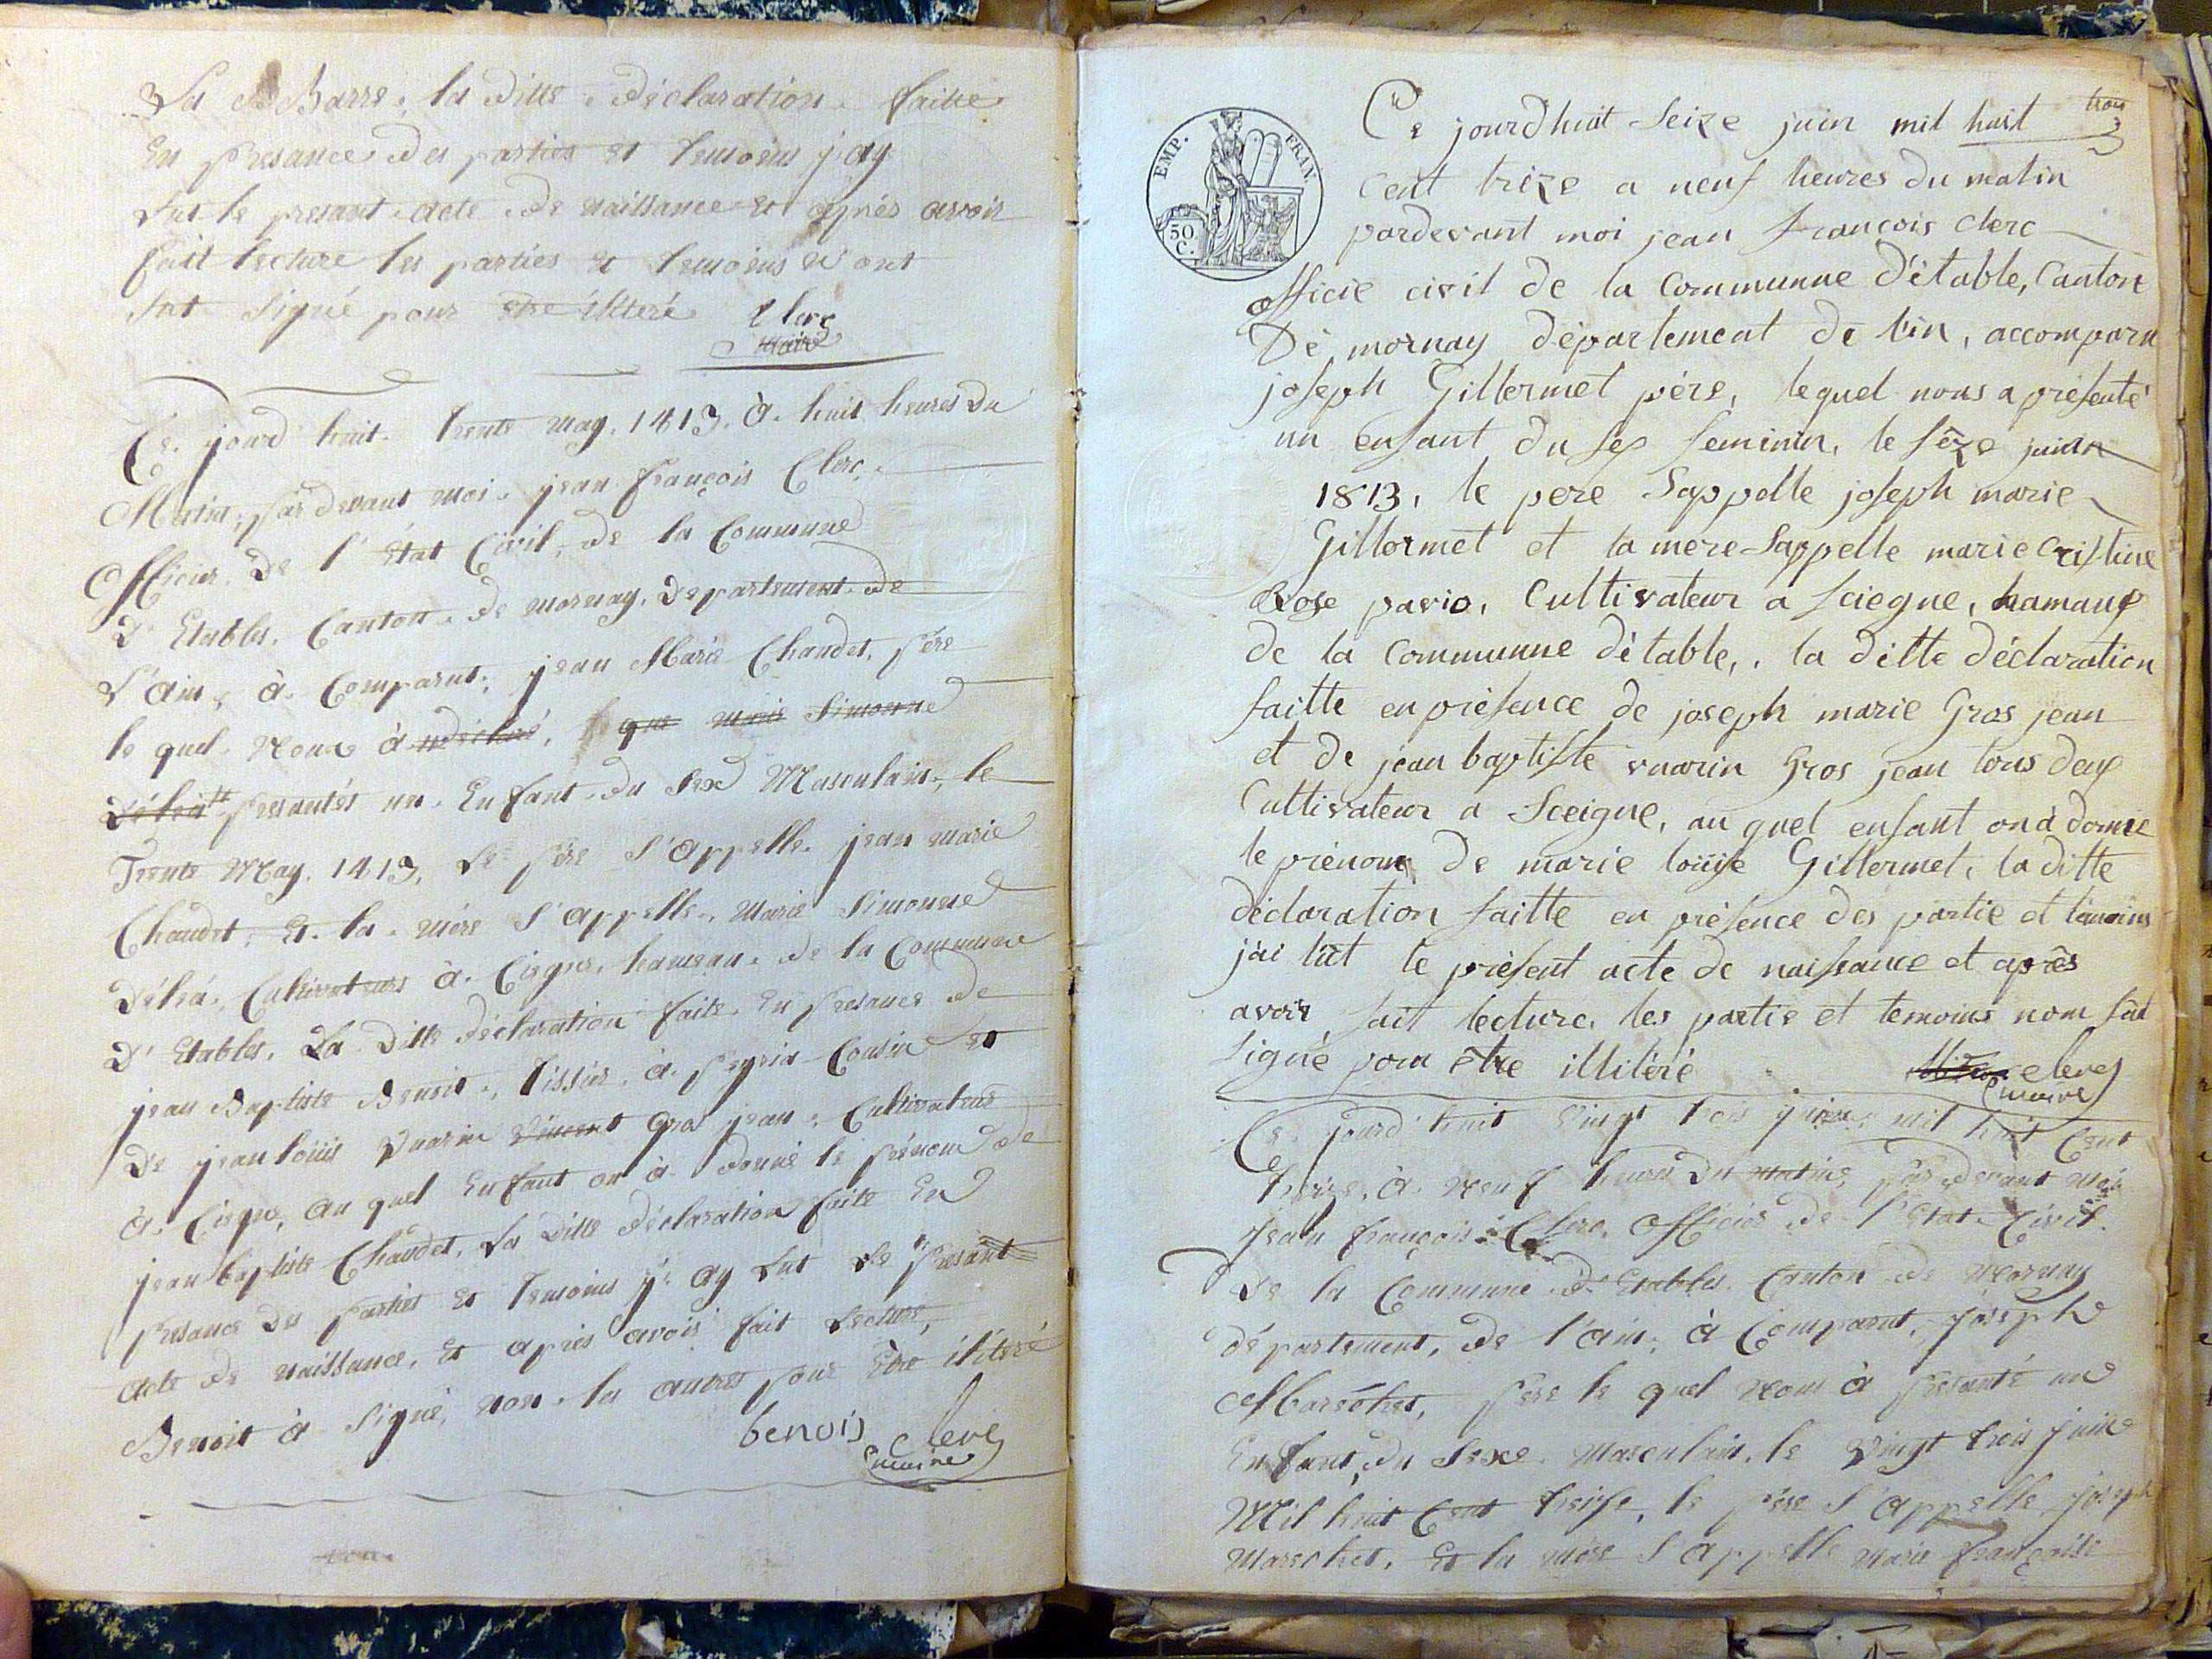 La Barre, la ditte déclaration faitte
En présance des parties et temoins j'ay
lut le présant acte de naissance et après avoir
fait lecture les parties et temoins n'ont
sut signé pour être illiteré Clerc
maire
Ce jourd'huit trente may 1813, à huit heures du
Matin, par devant moi jean françois Clerc
Officier de l'état Civil, de la Commune
D'Etables, Canton de mornay, Département de
L'ain, à Comparut, jean Marie Chaudet, père
le quel nous à déclaré, que marie Simonne
présantés un Enfant du sexe Masculain, le
Trente May 1813, Le père S'appelle jean marie
Chaudet, Et la mère S'appelle, Marie Simonne
Délia, Cultivateurs à Ciegne, hameau de la Commune
D'Etables, La Ditte déclaration faite, En présance de
jean Baptiste Benoit, Tissier, à peyria Cousin et
De jean loüis Vuarin Vincent gros jean, Cultivateur
à Ciegne, au quel Enfant on à donné le prénom de
jean baptiste Chaudet, La Ditte déclaration faite En
présance des parties et temoins j'ay Lut Le présant
acte de naissance, et après avoir fait Lecture,
Benoit à signé, non les autres pour être iliteré
benois Clerc
maire
EMP. FRAN.
50 C.
Ce jourdhuit seize juin mil huit trois
cent trize a neuf heures du matin
pardevant moi jean francois clerc
officie civil de la communne d'étable, canton
De mornay département de l'in, accomparu
joseph Gillermet père, lequel nous a présenté
un enfant du sex feminin, le sêze juin
1813, le pere Sappelle joseph marie
Gillermet et la mere Sappelle marie cristine
Rose pario, Cultivateur a sciegne, hamaux
de la communne d'étable, la ditte déclaration
faitte en présence de joseph marie Gros jean
et de jean baptiste vuarin Gros jean tous deux
Cultivateur a Sceigne, au quel enfant on à donné
le prénom de marie loüise Gillermet, la ditte
déclaration faitte en présence des partie et témoins
j'ai lüt le présent acte de naissance et après
avoir fait lecture, les partie et temoins nom sut
signé pour être illitéré clerc
maire
Ce jourd'huit vingt trois juin, mil huit Cent
treize, à neuf heures du matin, par devant moi
jean françois Clerc, officier de l'Etat Civil
De la Commune d'Etables Canton de Mornay
département, de l'ain, à Comparut, joseph
Maréchet, père le quel nous à présanté un
Enfant, du sexe Masculain, le vingt trois juin
Mil huit Cent treize, le père S'appelle joseph
Marechet, Et la mère S'appelle Marie françoise